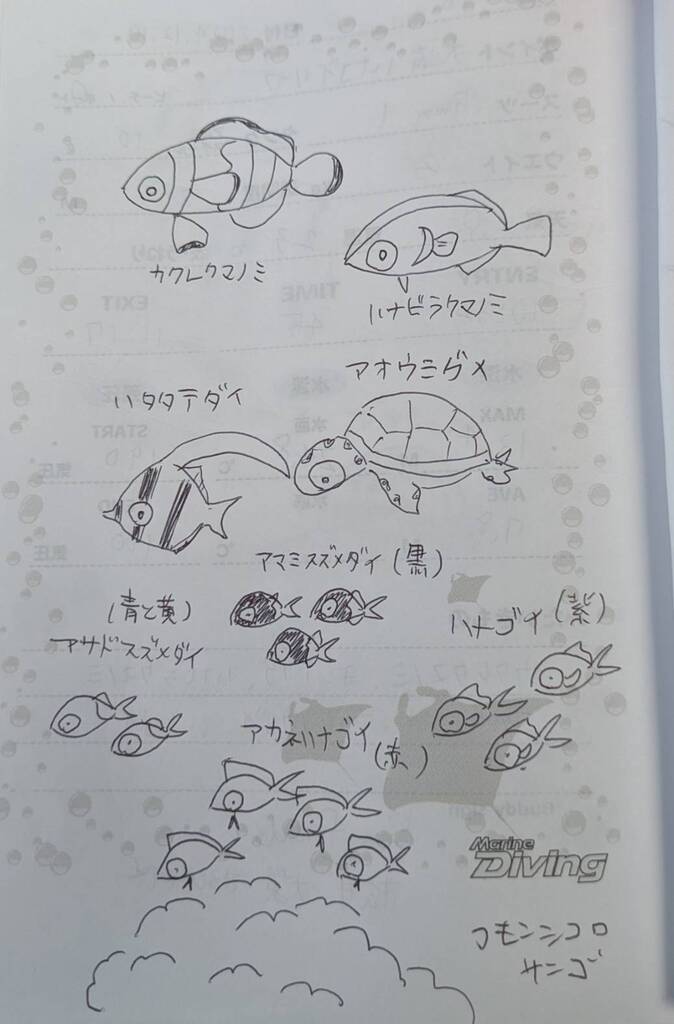 カクレクマノミ
ハナビラクマノミ
アオウミガメ
ハタタテダイ
アマミスズメダイ(黒)
(青と黄)
アサドスズメダイ
ハナゴイ(紫)
アカネハナゴイ(赤)
Marine
Diving
コモンシコロ
サンゴ